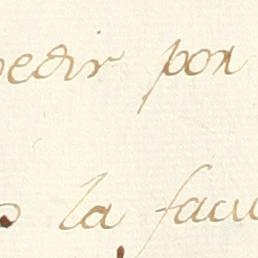 pedir por
la facu